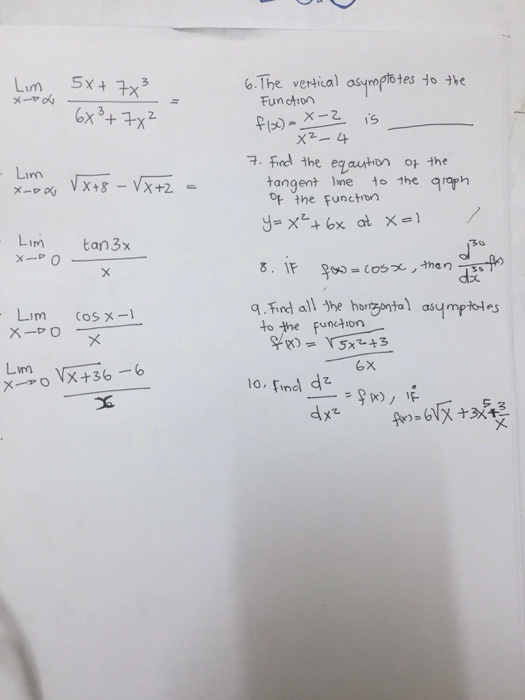 Lim x→∞ (5x + 7x³)/(6x³ + 7x²) =
Lim x→∞ √x+8 - √x+2 =
Lim x→0 tan 3x / x
Lim x→0 (cos x - 1)/x
Lim x→0 (√x+36 - 6)/x
6. The vertical asymptotes to the
Function
f(x) = (x-2)/(x²-4) is ________
7. Find the eqaution of the
tangent line to the graph
of the function
y = x² + 6x at x = 1
8. IF f(x) = cos x, then d³⁰/dx³⁰ f(x)
9. Find all the horizontal asymptotes
to the function
f(x) = √5x²+3 / 6x
10. Find d²/dx² = f(x), if
f(x) = 6√x + 3x⁵ + 3/x